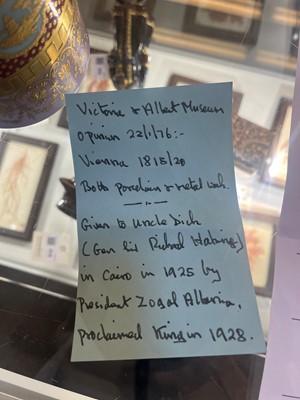 Victoria & Albert Museum
Opinion 22/1/76:-
Vienna 1815/20
Both porcelain & metal work.
Given to Uncle Dick
(Gen Sir Richard
in Cairo in 1925 by
President Zog of Albania,
proclaimed King in 1928.